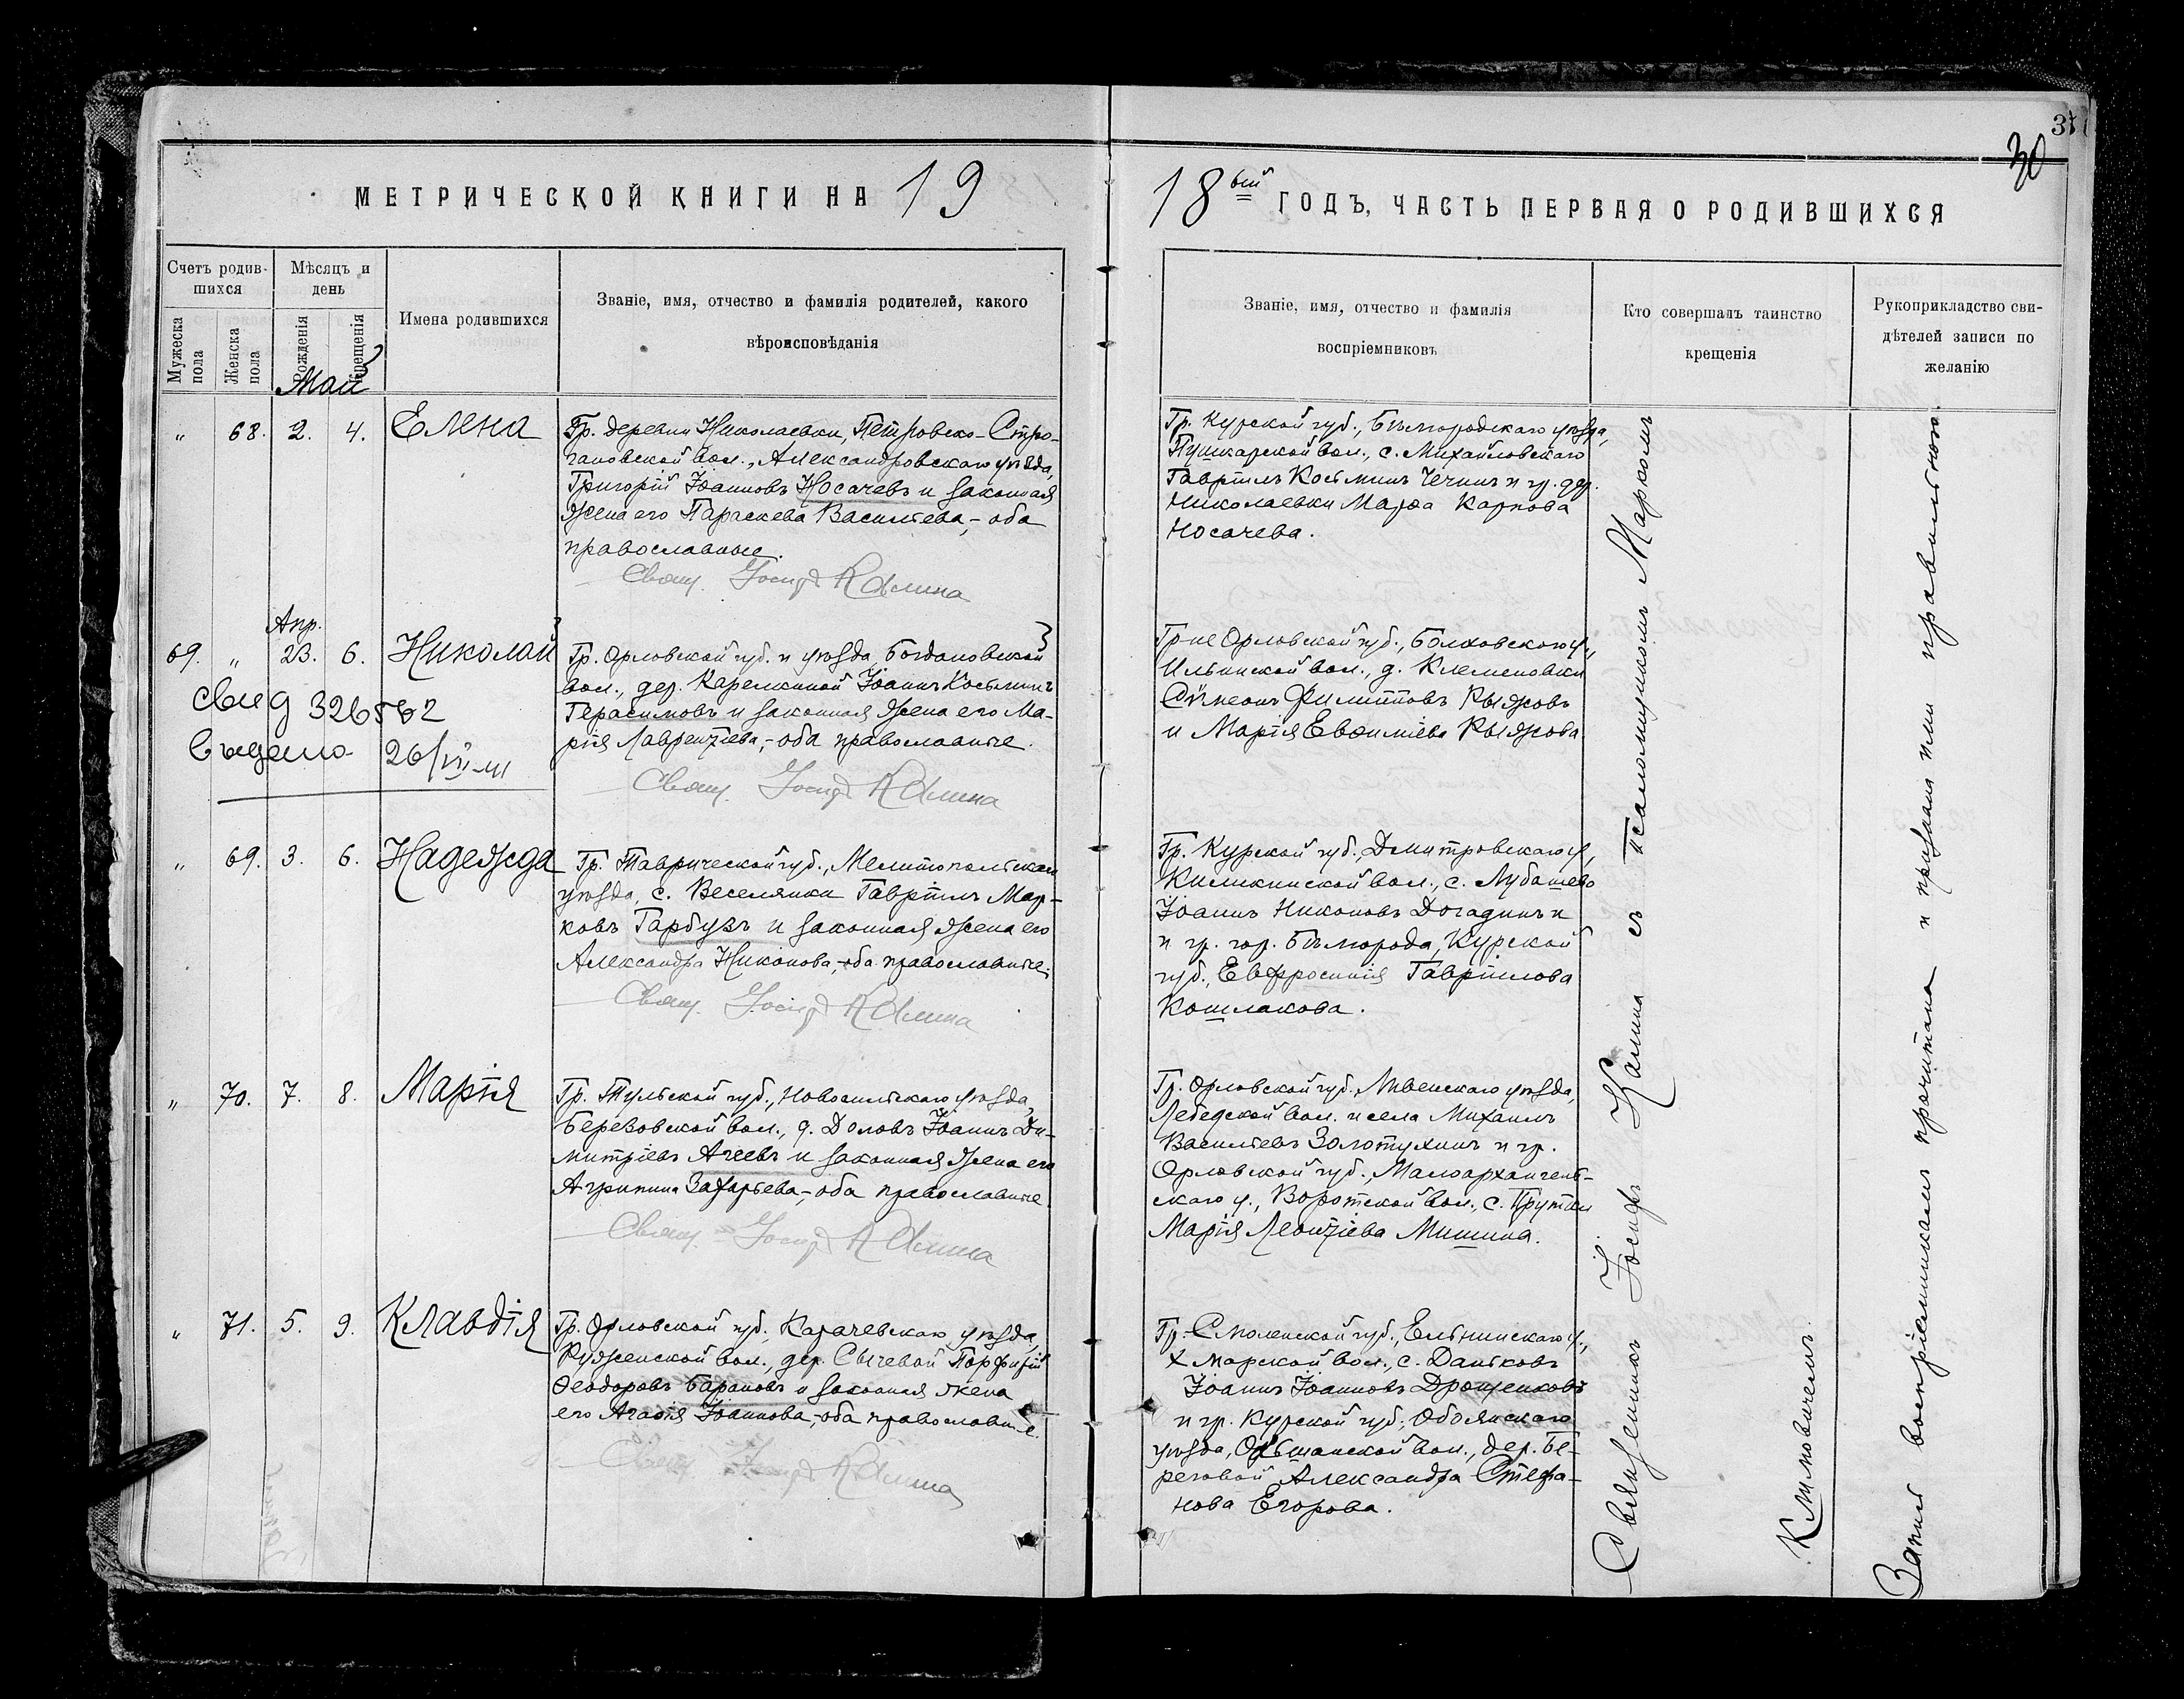 37
30
МЕТРИЧЕСКОЙ КНИГИ НА 19
18ый ГОДЪ, ЧАСТЬ ПЕРВАЯ О РОДИВШИХСЯ
Счетъ родив-
шихся
Мужеска
пола
Женска
пола
Мѣсяцъ и
день
Рожденія
Крещенія
Имена родившихся
Званіе, имя, отчество и фамилія родителей, какого
вѣроисповѣданія
Званіе, имя, отчество и фамилія
воспріемниковъ
Кто совершалъ таинство
крещенія
Рукоприкладство сви-
дѣтелей записи по
желанію
Май
„ 68. 2. 4. Елена
Гр. деревни Николаевки, Петровско-Стро-
гановской вол., Александровскаго уѣзда,
Григорій Іоанновъ Носачевъ и законная
жена его Параскева Васильева,- оба
православные.
Свящ. Іосифъ Калина
Гр. Курской губ., Бѣлгородскаго уѣзда,
Пушкарской вол., с. Михайловскаго
Гавріилъ Косьминъ Чечинъ и гр. дер.
Николаевки Марѳа Карпова
Носачева.
Апр.
69. „ 23. 6. Николай
свид 326582
выдано 26/VI
Гр. Орловской губ. и уѣзда, Богдановской
вол., дер. Карелкиной Іоаннъ Косьминъ
Герасимовъ и законная жена его Ма-
рія Лаврентіева,- оба православные.
Свящ. Іосифъ Калина
Гр-не Орловской губ., Болховского у.,
Ильинской вол., д. Клеменовки
Сѵмеонъ Филипповъ Рыжовъ
и Марія Евѳиміева Рыжова
„ 69. 3. 6. Надежда
Гр. Таврической губ., Мелитопольскаго
уѣзда, с. Веселянки Гавріилъ Мар-
ковъ Гарбузъ и законная жена его
Александра Никонова,-оба православные.
Свящ. Іосифъ Калина
Гр. Курской губ., Дмитровскаго у.,
вол., с. Лубашево
Іоаннъ Никоновъ Догадинъ и
и гр. гор. Бѣлгорода, Курской
губ., Евфросинія Гавріилова
Кошлакова.
„ 70. 7. 8. Марія
Гр. Тульской губ., Новосильскаго уѣзда,
Березовской вол., д. Доловъ Іоаннъ Ди-
митріевъ Агеевъ и законная жена его
Агрипина Захарьева,-оба православные.
Свящ. Іосифъ Калина
Гр. Орловской губ., Ливенскаго уѣзда,
Лебедской вол. и села Михаилъ
Васильевъ Золотухинъ и гр.
Орловской губ., Малоархангель-
скаго у., Воротской вол., с. Прутки
Марія Леонтіева Мишина.
„ 71. 5. 9. Клавдія
Гр. Орловской губ. Карачевскаго уѣзда,
Руженской вол., дер. Сычевой Порфирій
Ѳеодоровъ Барановъ и законная жена
его Агаѳія Іоаннова,-оба православные.
Свящ. Іосифъ Калина
Гр. Смоленской губ., Ельнинскаго у.,
Хмарской вол., с. Даньковъ
Іоаннъ Іоанновъ Дрощенковъ
и гр. Курской губ., Обоянскаго
уѣзда, Ольшанской вол., дер. Бе-
реговой Александра Стефа-
нова Егорова.
Священникъ Іосифъ Калина съ Псаломщикомъ Маркомъ
Климовичемъ.
Запись воспріемниками прочитана и признана ими правильною.